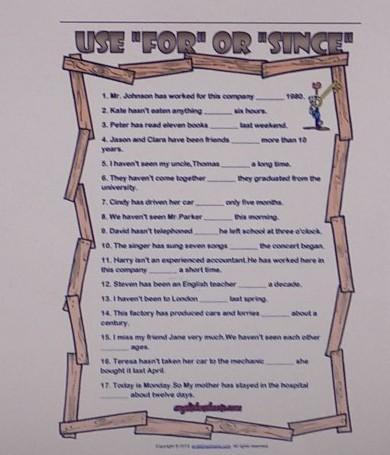 USE "FOR" OR "SINCE"
1. Mr. Johnson has worked for this company _______ 1980.
2. Kate hasn't eaten anything _______ six hours.
3. Peter has read eleven books _______ last weekend.
4. Jason and Clara have been friends _______ more than 10
years.
5. I haven't seen my uncle,Thomas _______ a long time.
6. They haven't come together _______ they graduated from the
university.
7. Cindy has driven her car _______ only five months.
8. We haven't seen Mr.Parker _______ this morning.
9. David hasn't telephoned _______ he left school at three o'clock.
10. The singer has sung seven songs _______ the concert began.
11. Harry isn't an experienced accountant.He has worked here in
this company _______ a short time.
12. Steven has been an English teacher _______ a decade.
13. I haven't been to London _______ last spring.
14. This factory has produced cars and lorries _______ about a
century.
15. I miss my friend Jane very much.We haven't seen each other
_______ ages.
16. Teresa hasn't taken her car to the mechanic _______ she
bought it last April.
17. Today is Monday.So My mother has stayed in the hospital
_______ about twelve days.